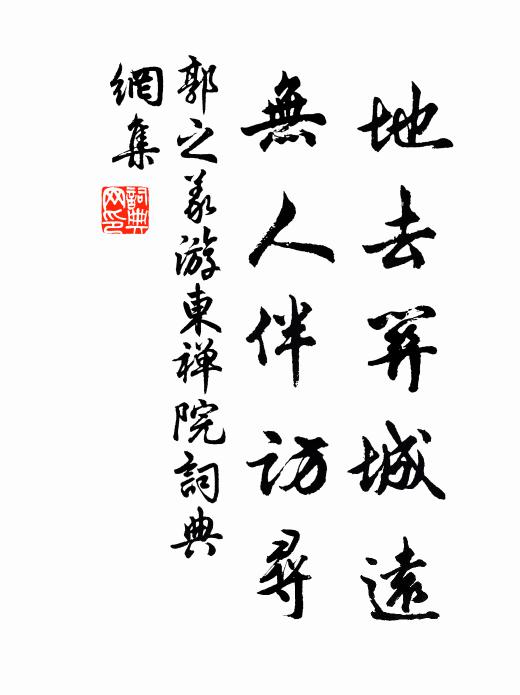 地去城遠
無人伴訪尋
郭之義游東禅院詞典
網集
詞典网印